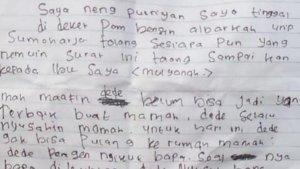 Saya neng puriyan Saya tinggal
di deket Pom bensin albarkah unip
Sumoharjo tolong Sesiapa Pun yang
nemuin Surat ini tolong Sampai kan
kepada Ibu Saya <muryonah>
mah maafin dede belum bisa jadi yang
terbaik buat mamah, dede Selalu
nyusahin mamah untuk hari ini, dede
gak bisa Pulang ke rumah mamah
dede Pengen ngikut bapa. nya
bapa